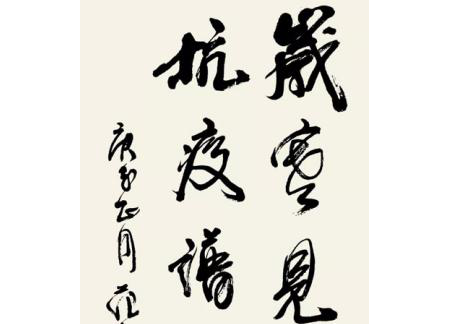 歲寒見
抗疫譜
庚子正月